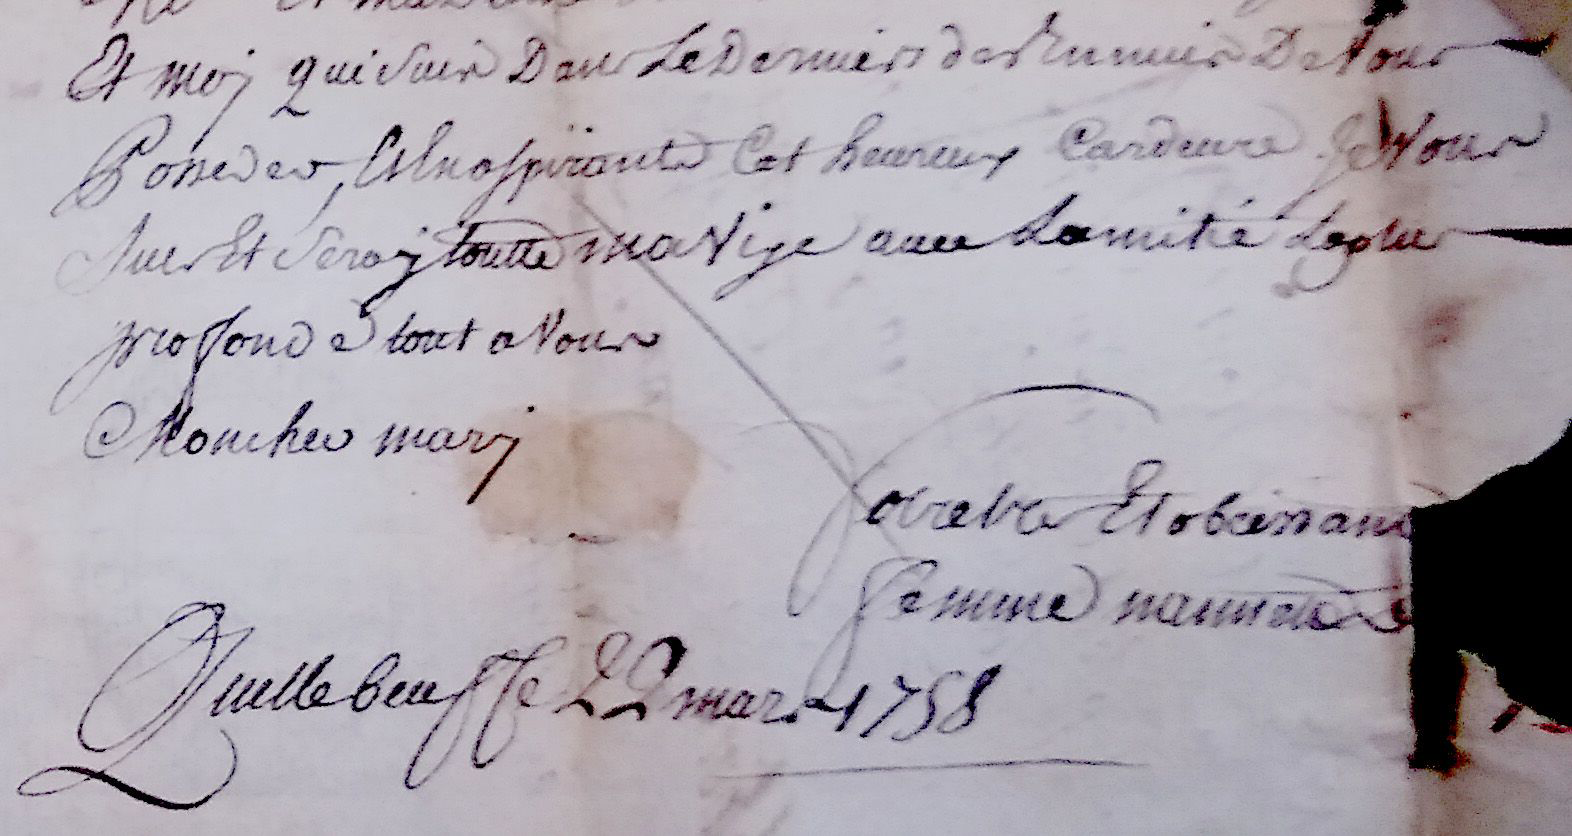 Et moy qui suis Dans Le Dernier des Ennuis De Vous
Posseder, Et En aspirant Cet heureux Cardeure Je Vous
suis Et seray toutte ma Vige avec Lamitié Leplus
profond e tout a Vous
Moncher mary
Et obeissan
femme nannette
Quillebeuf le 22 mars 1758